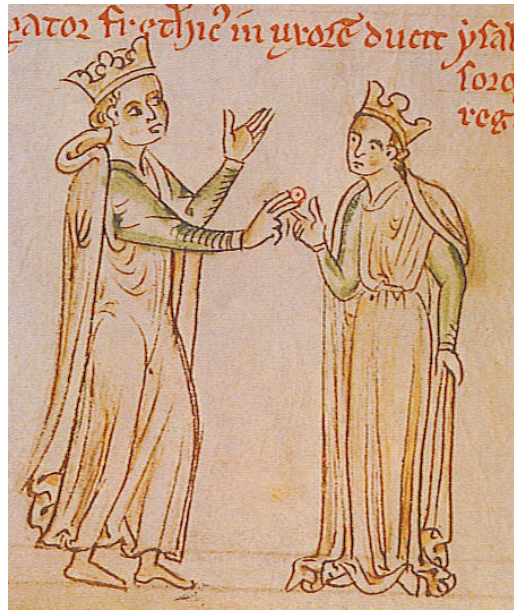 gator frethic' in uxorē ducit ysab
soro
reg